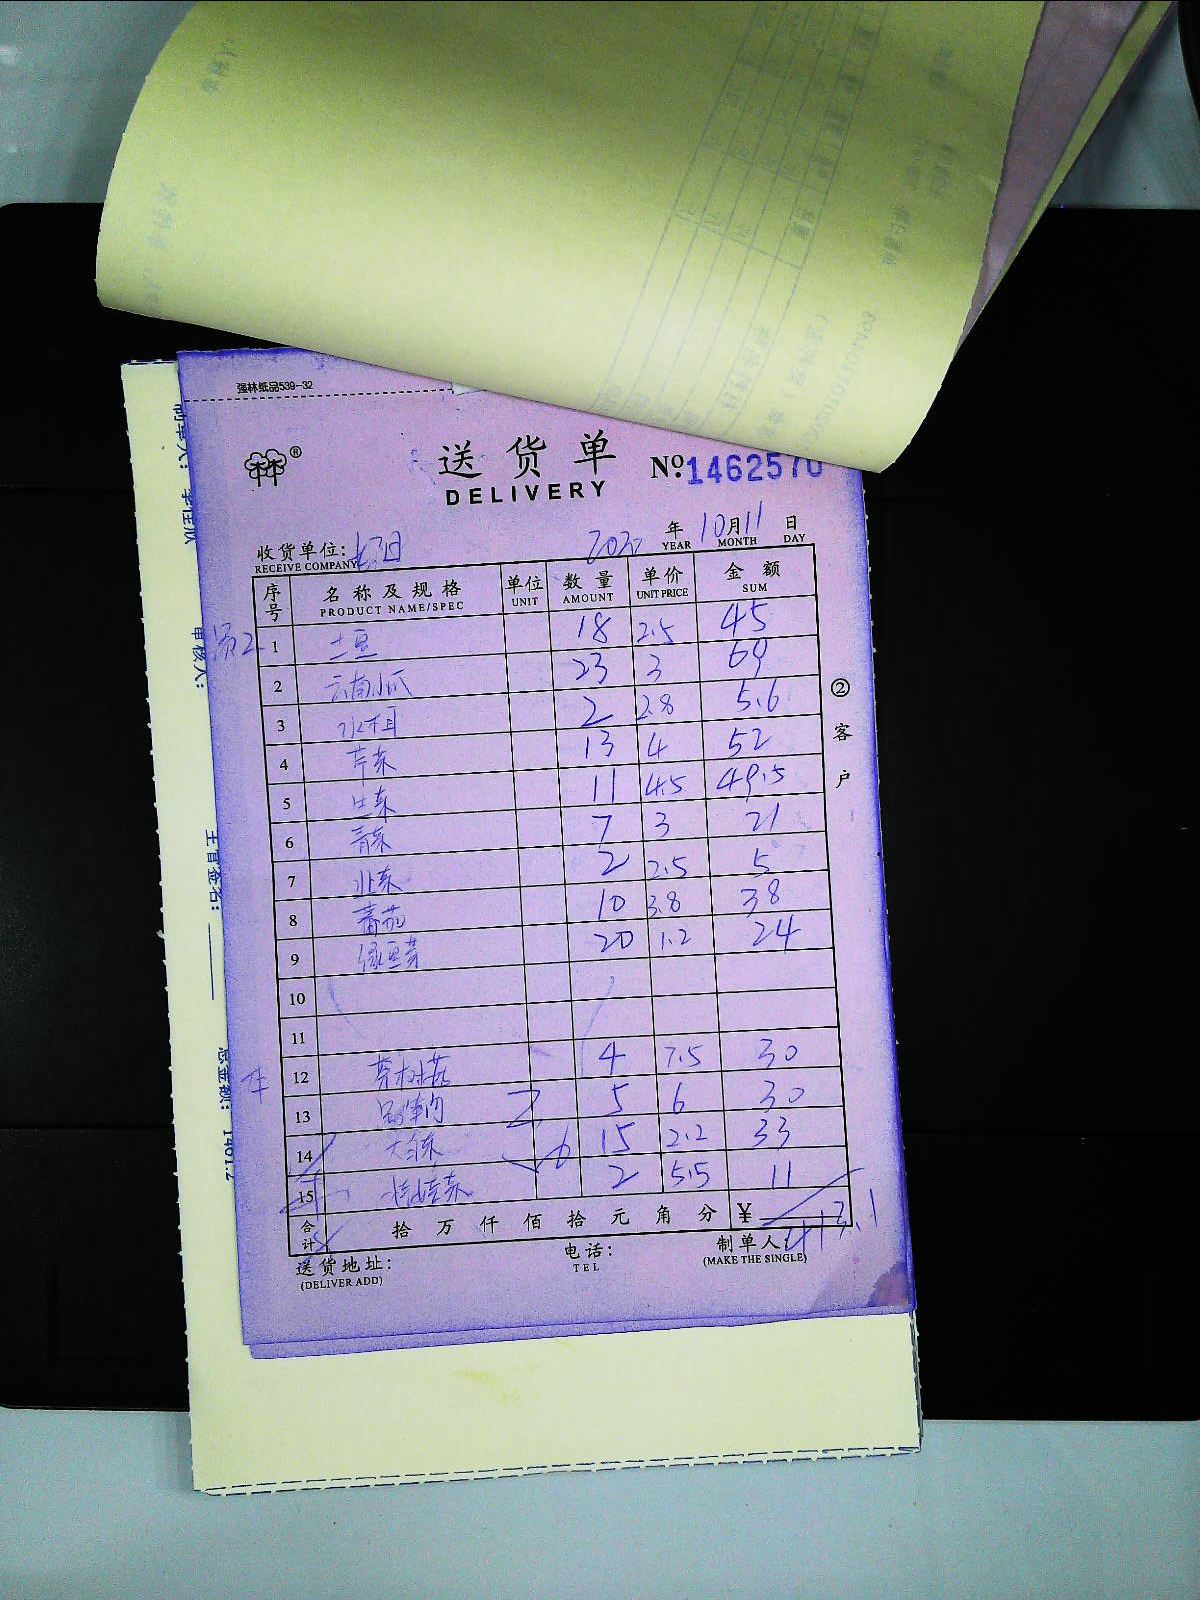 强林纸品539-32
林林®
送货单
DELIVERY
№ 1462570
收货单位:
RECEIVE COMPANY
2020 年 10 月 11 日
YEAR MONTH DAY
序号 名称及规格 单位 数量 单价 金额
PRODUCT NAME/SPEC UNIT AMOUNT UNIT PRICE SUM
1 土豆 18 2.5 45
2 云南小瓜 23 3 69
3 水木耳 2 2.8 5.6
4 芹菜 13 4 52
5 生菜 11 4.5 49.5
6 青菜 7 3 21
7 小菜 2 2.5 5
8 蕃茄 10 3.8 38
9 绿豆芽 20 1.2 24
10
11
12 4 7.5 30
13 5 6 30
14 大白菜 15 2.2 33
15 娃娃菜 2 5.5 11
合计 拾 万 仟 佰 拾 元 角 分 ¥ 413.1
送货地址:
(DELIVER ADD)
电话:
TEL
制单人:
(MAKE THE SINGLE)
② 客户
审核人:
主管签名:
总金额: 1461.2